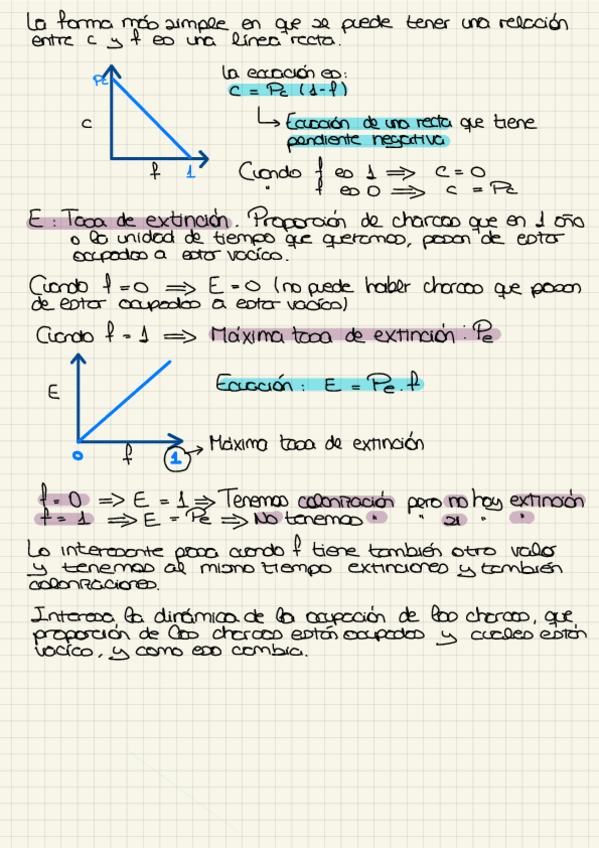 La forma más simple en que se puede tener una relación
entre c y f es una línea recta.
La ecuación es:
Pc
c = Pc (1-f)
c
↳ Ecuación de una recta que tiene
pendiente negativa
f 1
Cuando f es 1 ⇒ c = 0
" f es 0 ⇒ c = Pc
E: Tasa de extinción. Proporción de charcas que en 1 año
o la unidad de tiempo que queramos, pasan de estar
ocupados a estar vacíos.
Cuando f = 0 ⇒ E = 0 (no puede haber charcas que pasan
de estar ocupados a estar vacíos)
Cuando f = 1 ⇒ Máxima tasa de extinción: Pe
E
Ecuación: E = Pe.f
0 f 1 → Máxima tasa de extinción
f = 0 ⇒ E = 1 ⇒ Tenemos colonización pero no hay extinción
f = 1 ⇒ E = Pe ⇒ No tenemos " " si " "
Lo interesante pasa cuando f tiene también otro valor
y tenemos al mismo tiempo extinciones y también
colonizaciones.
Interesa la dinámica de la ocupación de los charcos, que
proporción de los charcos están ocupados y cuales están
vacíos, y como eso cambia.